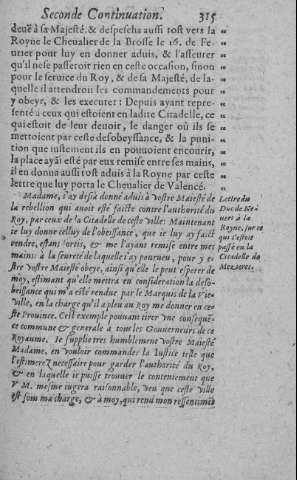 Seconde Continuation. 315
deuë à sa Majesté, & despescha aussi tost vers la
Royne le Cheualier de la Brosse le 16. de Fe-
urier pour luy en donner aduis, & l'asseurer
qu'il ne se passeroit rien en ceste occasion, sinon
pour le seruice du Roy, & de sa Majesté, de la-
quelle il attendroit les commandements pour
y obeyr, & les executer : Depuis ayant repre-
senté à ceux qui estoient en ladite Citadelle, ce
qui estoit de leur deuoir, le danger où ils se
mettoient par ceste desobeyssance, & la puni-
tion que iustement ils en pouuoient encourir,
la place ayãt esté par eux remise entre ses mains,
il en donna aussi tost aduis à la Royne par ceste
lettre que luy porta le Cheualier de Valencé.
Madame, i'ay desia donné aduis à vostre Maiesté de
la rebellion qui auoit esté faicte contre l'authorité du
Roy, par ceux de la Citadelle de ceste ville: Maintenant
ie luy donne celluy de l'obeissance, que ie luy ay faict
rendre, estans sortis, & me l'ayans remise entre mes
mains: à la seureté de laquelle i'ay pourueu, pour y e-
stre vostre Maiesté obeye, ainsi qu'elle le peut esperer de
moy, estimant qu'elle mettra en consideration la deso-
beissance qui m'a esté rendue par le Marquis de la Vie-
ville, en la charge qu'il a pleu au Roy me donner en ce-
ste Prouince. C'est exemple pouuant tirer vne consequẽ-
ce commune & generale à tous les Gouuerneurs de ce
Royaume. Ie supplie tres humblement vostre Maiesté
Madame, en vouloir commander la Iustice telle que
l'estimerez necessaire pour garder l'authorité du Roy,
& en laquelle ie puisse trouuer le contentement que
V M. mesme iugera raisonnable, veu que ceste ville
est soubs ma charge, & à moy, qui rend mon ressentiment
Lettre du
Duc de Ne-
uers à la
Royne, sur ce
qui s'estoit
passé en la
Citadelle de
Mezieres.